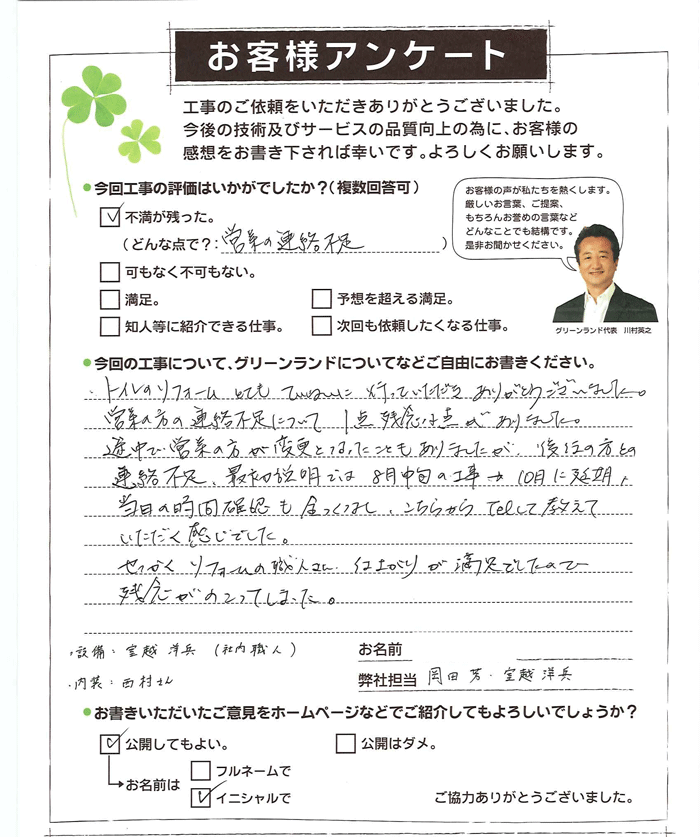 お客様アンケート
工事のご依頼をいただきありがとうございました。
今後の技術及びサービスの品質向上の為に、お客様の
感想をお書き下されば幸いです。よろしくお願いします。
●今回工事の評価はいかがでしたか？（複数回答可）
不満が残った。
（どんな点で？：営業の連絡不足）
可もなく不可もない。
満足。
予想を超える満足。
知人等に紹介できる仕事。
次回も依頼したくなる仕事。
お客様の声が私たちを熱くします。
厳しいお言葉、ご提案、
もちろんお誉めの言葉など
どんなことでも結構です。
是非お聞かせください。
グリーンランド代表 川村英之
●今回の工事について、グリーンランドについてなどご自由にお書きください。
・トイレのリフォーム とても ていねいに 行っていただき ありがとうございました。
営業の方の連絡不足について 1点残念な点がありました。
途中で営業の方が変更となったこともありましたが、後任の方との
連絡不足、最初説明では 8月中旬の工事→10月に延期、
当日の時間確認も全くなし、こちらからTELして教えて
いただく感じでした。
せっかく リフォームの職人さん 仕上がりが 満足でしたので
残念がのこってしまった。
・設備：室越洋兵（社内職人）
・内装：西村さん
お名前
弊社担当 岡田 芳・室越洋兵
●お書きいただいたご意見をホームページなどでご紹介してもよろしいでしょうか？
公開してもよい。
公開はダメ。
お名前は
フルネームで
イニシャルで
ご協力ありがとうございました。